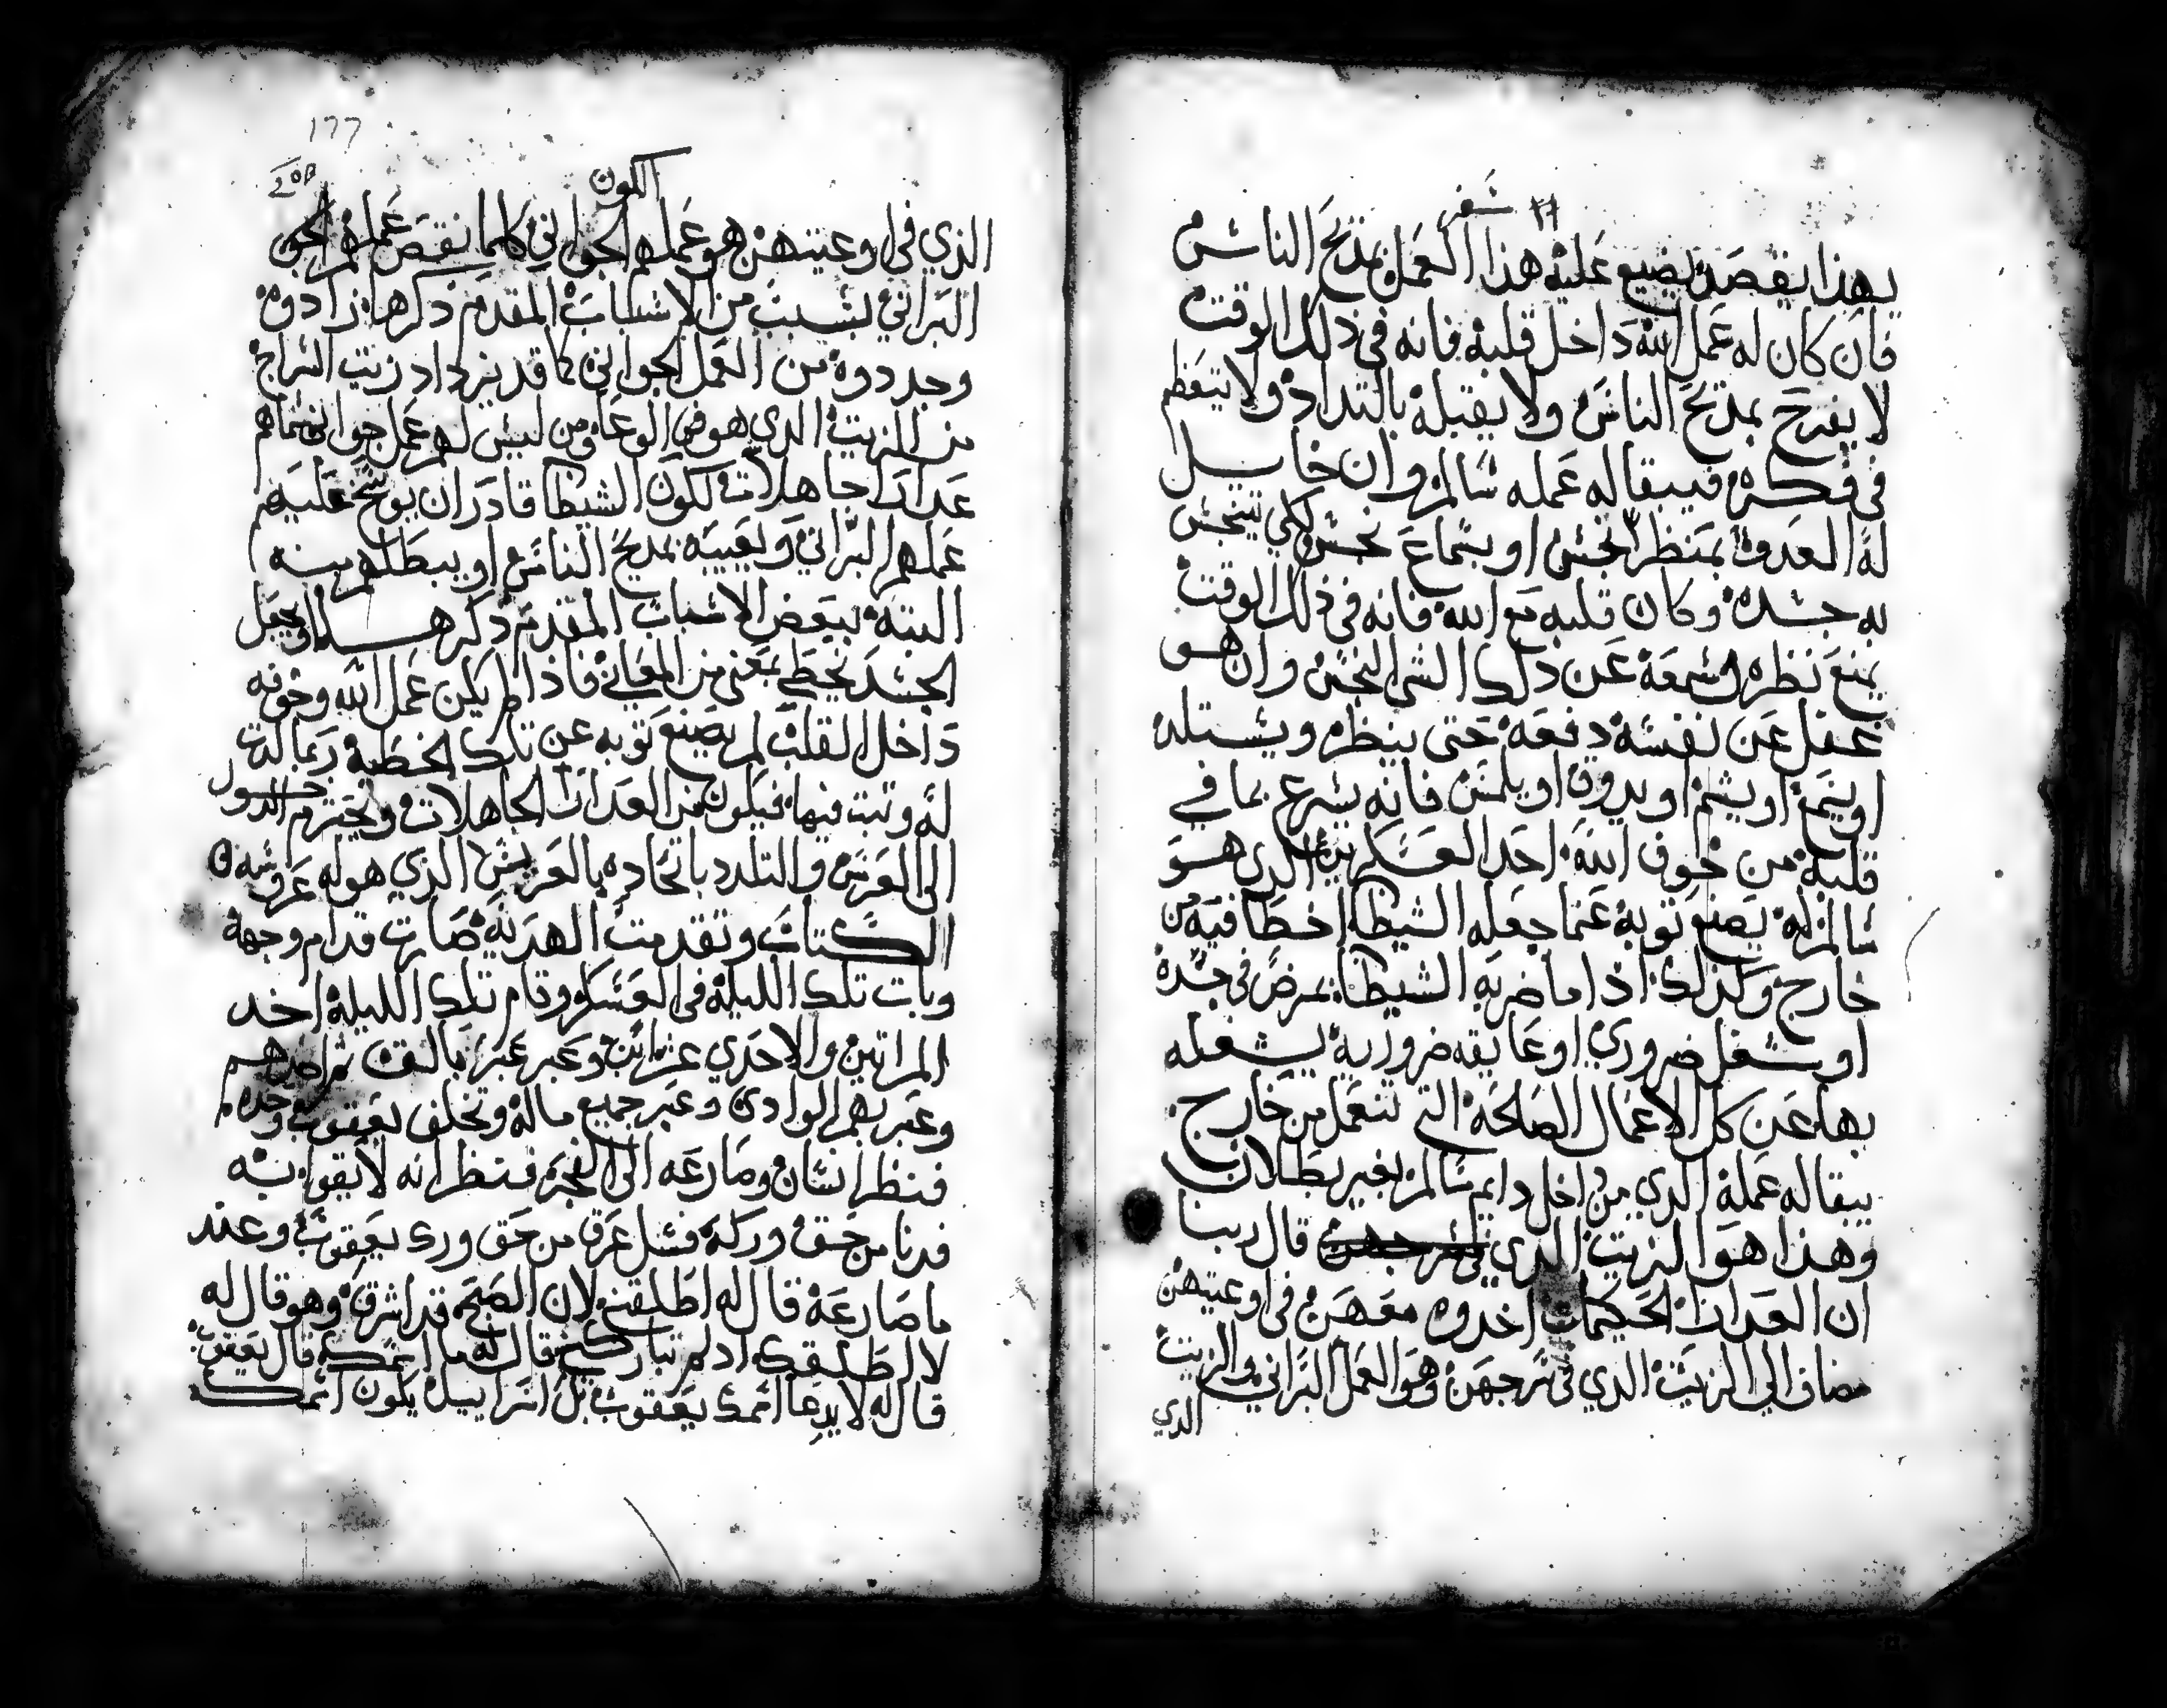 سفر
بهذا يقصد يضيع عليه هذا العمل بمديح الناس
فان كان له عمل الله داخل قلبه فانه في ذلك الوقت
لا يفرح بمديح الناس ولا يقبله بالتداد ولا يتعظم
في فكره فيبقا له عمله سالم وان خايل
له العدو بمنظر نجس او بسماع نجس لكي ينجس
به جسده وكان قلبه مع الله فانه في ذلك الوقت
يمنع نظره وسمعه عن ذلك الشي النجس وان هو
غفل عن نفسه دفعه حتى ينظر ويستلد
او يسمع او يشم او يدوق او يلمس فانه يسرع بما في
قلبه من خوف الله احد العسكرين الذي هو
سالم له يصنع توبه عنما جعله الشيطان اخطا فيه من
خارج وكذلك اذا ما ضربه الشيطان بمرض في جسده
او شغل ضروري او عايقه ضروريه يشغله
بها عن كل الاعمال الصالحه التي تنعمل من خارج
يبقا له عمله الدي من داخل دايم سالم بغير بطلان
وهذا هو الزيت الدي قال ربنا
ان العدارا الحكيمات اخدوه معهن في اوعيتهن
مضاف الي الزيت الدي في سرجهن وهو العمل البراني والزيت
الدي
177
الكون
الذي في اوعيتهن هو عملهم الجواني كلما نقص عملهم
البراني بسبب من الاسباب المقدم ذكرها زادوه
وجددوه من العمل الجواني كما قد يزداد زيت السراج
من الزيت الدي هو في الوعا ومن ليس لهم عمل جواني سماهم
عدارا جاهلات لكون الشيطان قادر ان يوسخ عليهم
عملهم البراني ويعيبه بمديح الناس او يبطلهم منه
البته ببعض الاسباب المقدم ذكرها او يجعل
الجسد يخطي بمعنى من المعاني فاذا لم يكن عمل الله وخوفه
داخل القلب لم يصنع توبه عن تلك الخطيه ربما لدت
له وتبت فيها فيكون من العدارا الجاهلات ويحترم الدخول
الى العرس والتلدد باتحاده بالعريس الذي هو له عروسه
الكتاب وتقدمت الهديه صارت قدام وجهه
وبات تلك الليله في العسكر وقام تلك الليله اخد
المراتين والاحدي عشر ابن وعبر عبر بالقت ثم اخدهم
وعبر بهم الوادي وعبر جميع ماله وتخلف يعقوب وحده
فنظر انسان وصارعه الى الفجر فنظر انه لا يقوا به
فدنا من حق وركه فشل عرق من حق ورك يعقوب وعند
ما صارعه قال له اطلقني لان الصبح قد اشرق وهو قال له
لا اطلقك اد لم تباركني قال له ما اسمك قال يعقوب
قال له لا يدعا اسمك يعقوب بل اسراييل يكون اسمك